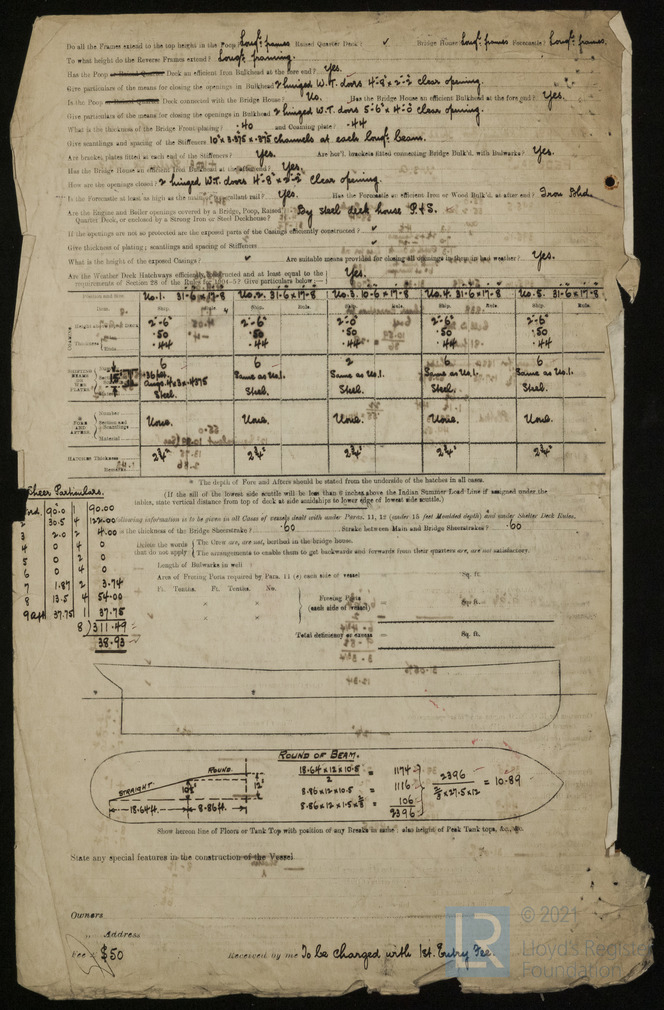 Do all the Frames extend to the top height in the Poop? Long'l frames Raised Quarter Deck? ✓ Bridge House Long'l frames Forecastle? Long'l frames.
To what height do the Reverse Frames extend? Long'l framing.
Has the Poop or Raised Quarter Deck an efficient Iron Bulkhead at the fore end? Yes.
Give particulars of means for closing the openings in Bulkhead 2 hinged W.T. doors 4'-8" x 2'-2" clear opening.
Is the Poop or Raised Quarter Deck connected with the Bridge House? No. Has the Bridge House an efficient Bulkhead at the fore end? Yes.
Give particulars of means for closing the openings in Bulkhead 2 hinged W.T. doors 5'-6" x 4'-0" clear opening.
What is the thickness of the Bridge Front plating? .40 and Coaming plate? .44
Give scantlings and spacing of the Stiffeners 10" x 3.375 x .375 channels at each long'l beam.
Are bracket plates fitted at each end of the Stiffeners? Yes. Are hor'l. brackets fitted connecting Bridge Bulk'd. with Bulwarks? Yes.
Has the Bridge House an efficient Iron Bulkhead at the Yes.
How are the openings closed? 2 hinged W.T. doors 4'-8" x 2'-2" clear opening.
Is the Forecastle at least as high as the main or topgallant rail? Yes. Has the Forecastle an efficient Iron or Wood Bulk'd. at after end? Iron Bhd.
Are the Engine and Boiler openings covered by a Bridge, Poop, Raised
Quarter Deck, or enclosed by a Strong Iron or Steel Deckhouse? By steel deck house P&S.
If the openings are not so protected are the exposed parts of the Casings efficiently constructed? ✓
Give thickness of plating; scantlings and spacing of Stiffeners
What is the height of the exposed Casings? ✓ Are suitable means provided for closing all openings in them in bad weather? Yes.
Are the Weather Deck Hatchways efficiently constructed and at least equal to the
requirements of Section 28 of the Rules for 1904-5? Give particulars below Yes.
No.1. 31-6 x 17-8 No.2. 31-6 x 17-8 No.3. 10-6 x 17-8 No.4. 31-6 x 17-8 No.5. 31-6 x 17-8
Ship. Rule. Ship. Rule. Ship. Rule. Ship. Rule. Ship. Rule.
2'-6" 2'-6" 2'-0" 2'-6" 2'-6"
Thickness .50 .50 .50 .50 .50
.44 .44 .44 .44 .44
6 6 2 6 6
Same as No.1. Same as No.1. Same as No.1. Same as No.1.
Steel. Steel. Steel. Steel. Steel.
FORE AND AFTERS Number
Section and Scantlings None. None. None. None. None.
Material
HATCHES Thickness 2¾" 2¾" 2¾" 2¾" 2¾"
Remarks
* The depth of Fore and Afters should be stated from the underside of the hatches in all cases.
(If the sill of the lowest side scuttle will be less than 6 inches above the Indian Summer Load-Line if assigned under the
tables, state vertical distance from top of deck at side amidships to lower edge of lowest side scuttle.)
Following information is to be given in all Cases of vessels dealt with under Paras. 11, 12 (under 15 feet Moulded depth) and under Shelter Deck Rules.
is the thickness of the Bridge Sheerstrake? .60 Strake between Main and Bridge Sheerstrakes? .60
Delete the words that do not apply { The Crew are, are not, berthed in the bridge house.
The arrangements to enable them to get backwards and forwards from their quarters are, are not satisfactory.
Length of Bulwarks in well
Area of Freeing Ports required by Para. 11 (e) each side of vessel Sq. ft.
Ft. Tenths. Ft. Tenths. No.
Freeing Ports (each side of vessel) Sq. ft.
Total deficiency or excess Sq. ft.
Sheer Particulars.
90.0 1 90.00
2 30.5 4 122.00
3 2.0 2 4.00
4 0 4 0
5 0 2 0
6 0 4 0
7 1.87 2 3.74
8 13.5 4 54.00
9 aft 37.75 1 37.75
8 ) 311.49
38.93
ROUND OF BEAM.
STRAIGHT ROUND
10½" 12"
18.64 ft. 8.86 ft.
18.64 x 12 x 10.5 / 2 = 1174
8.86 x 12 x 10.5 = 1116
8.86 x 12 x 1.5 x ⅔ = 106
2396
2396 / ⅔ x 27.5 x 12 = 10.89
Show hereon line of Floors or Tank Top with position of any Breaks in same: also height of Peak Tank tops, &c., &c.
State any special features in the construction of the Vessel
Owners
Address
Fee $50 Received by me To be charged with 1st. Entry Fee.
LR © 2021
Lloyd's Register
Foundation